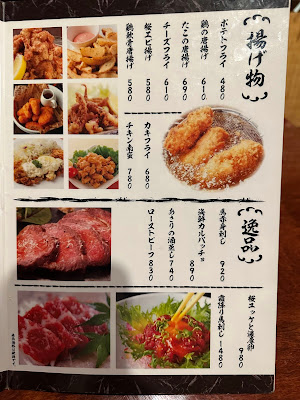 揚げ物
ポテトフライ 480
鶏の唐揚げ 610
たこの唐揚げ 690
チーズフライ 610
桜エビ揚げ 580
鶏軟骨唐揚げ 580
カキフライ 680
チキン南蛮 780
逸品
馬赤身刺し 920
海鮮カルパッチョ 890
あさりの酒蒸し 740
ローストビーフ 830
桜ユッケと海苔 980
霜降り馬刺し 1480